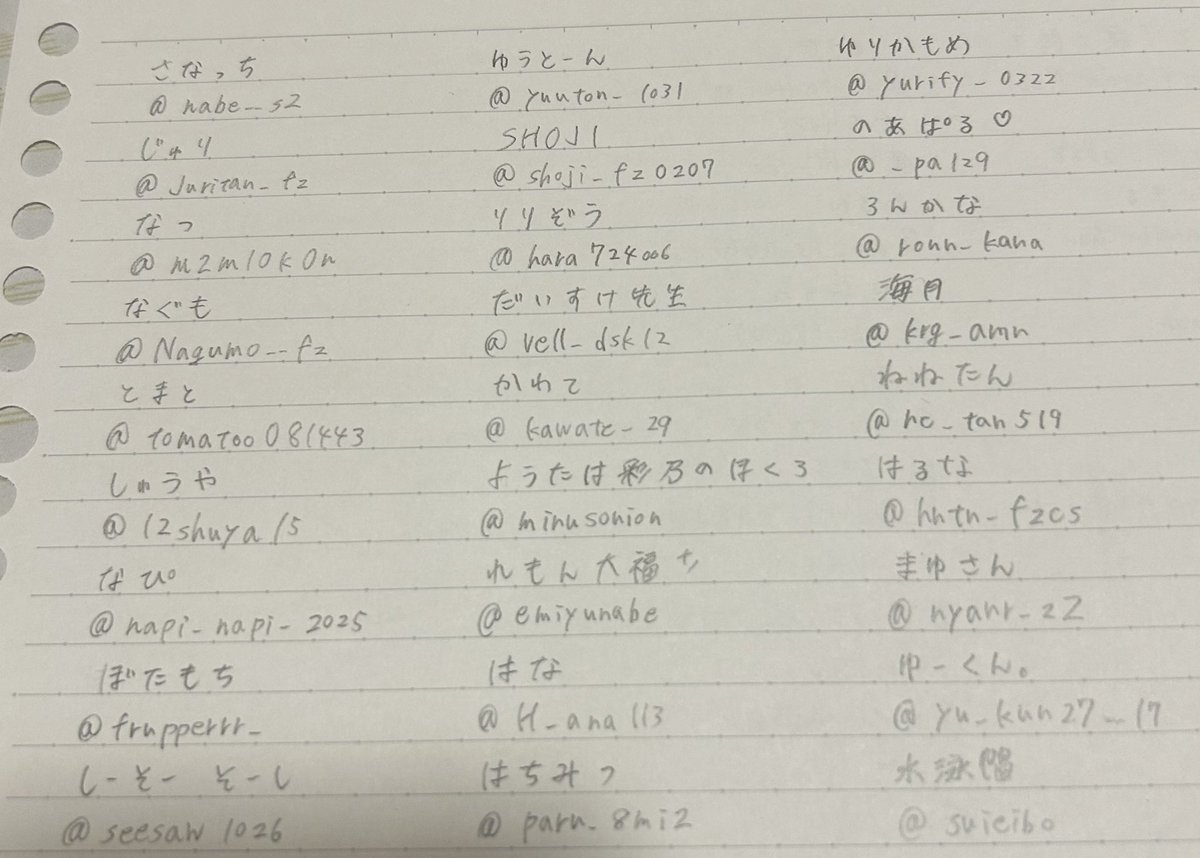 さなっち
@nabe__s2
じゅり
@Juritan_fz
なつ
@m2m10k0n
なぐも
@Nagumo__fz
とまと
@tomatoo081443
しゅうや
@12shuya15
なぴ。
@napi_napi_2025
ぼたもち
@frupperrr_
しーそー そーし
@seesaw1026
ゆうとーん
@yuuton_1031
SHOJI
@shoji_fz0207
りりぞう
@hara724006
だいすけ先生
@vell_dsk12
かわて
@kawate_29
ようたは彩乃のほくろ
@minusonion
れもん大福
@emiyunabe
はな
@H_ana113
はちみつ
@paru_8mi2
ゆりかもめ
@yurify_0322
のあぱる♡
@_pa129
ろんかな
@ronn_kana
海月
@krg_amn
ねねたん
@ne_tan519
はるな
@hntn_fzcs
まゆさん
@nyanr_22
ゆーくん。
@yu_kun27__17
水泳
@suieibo